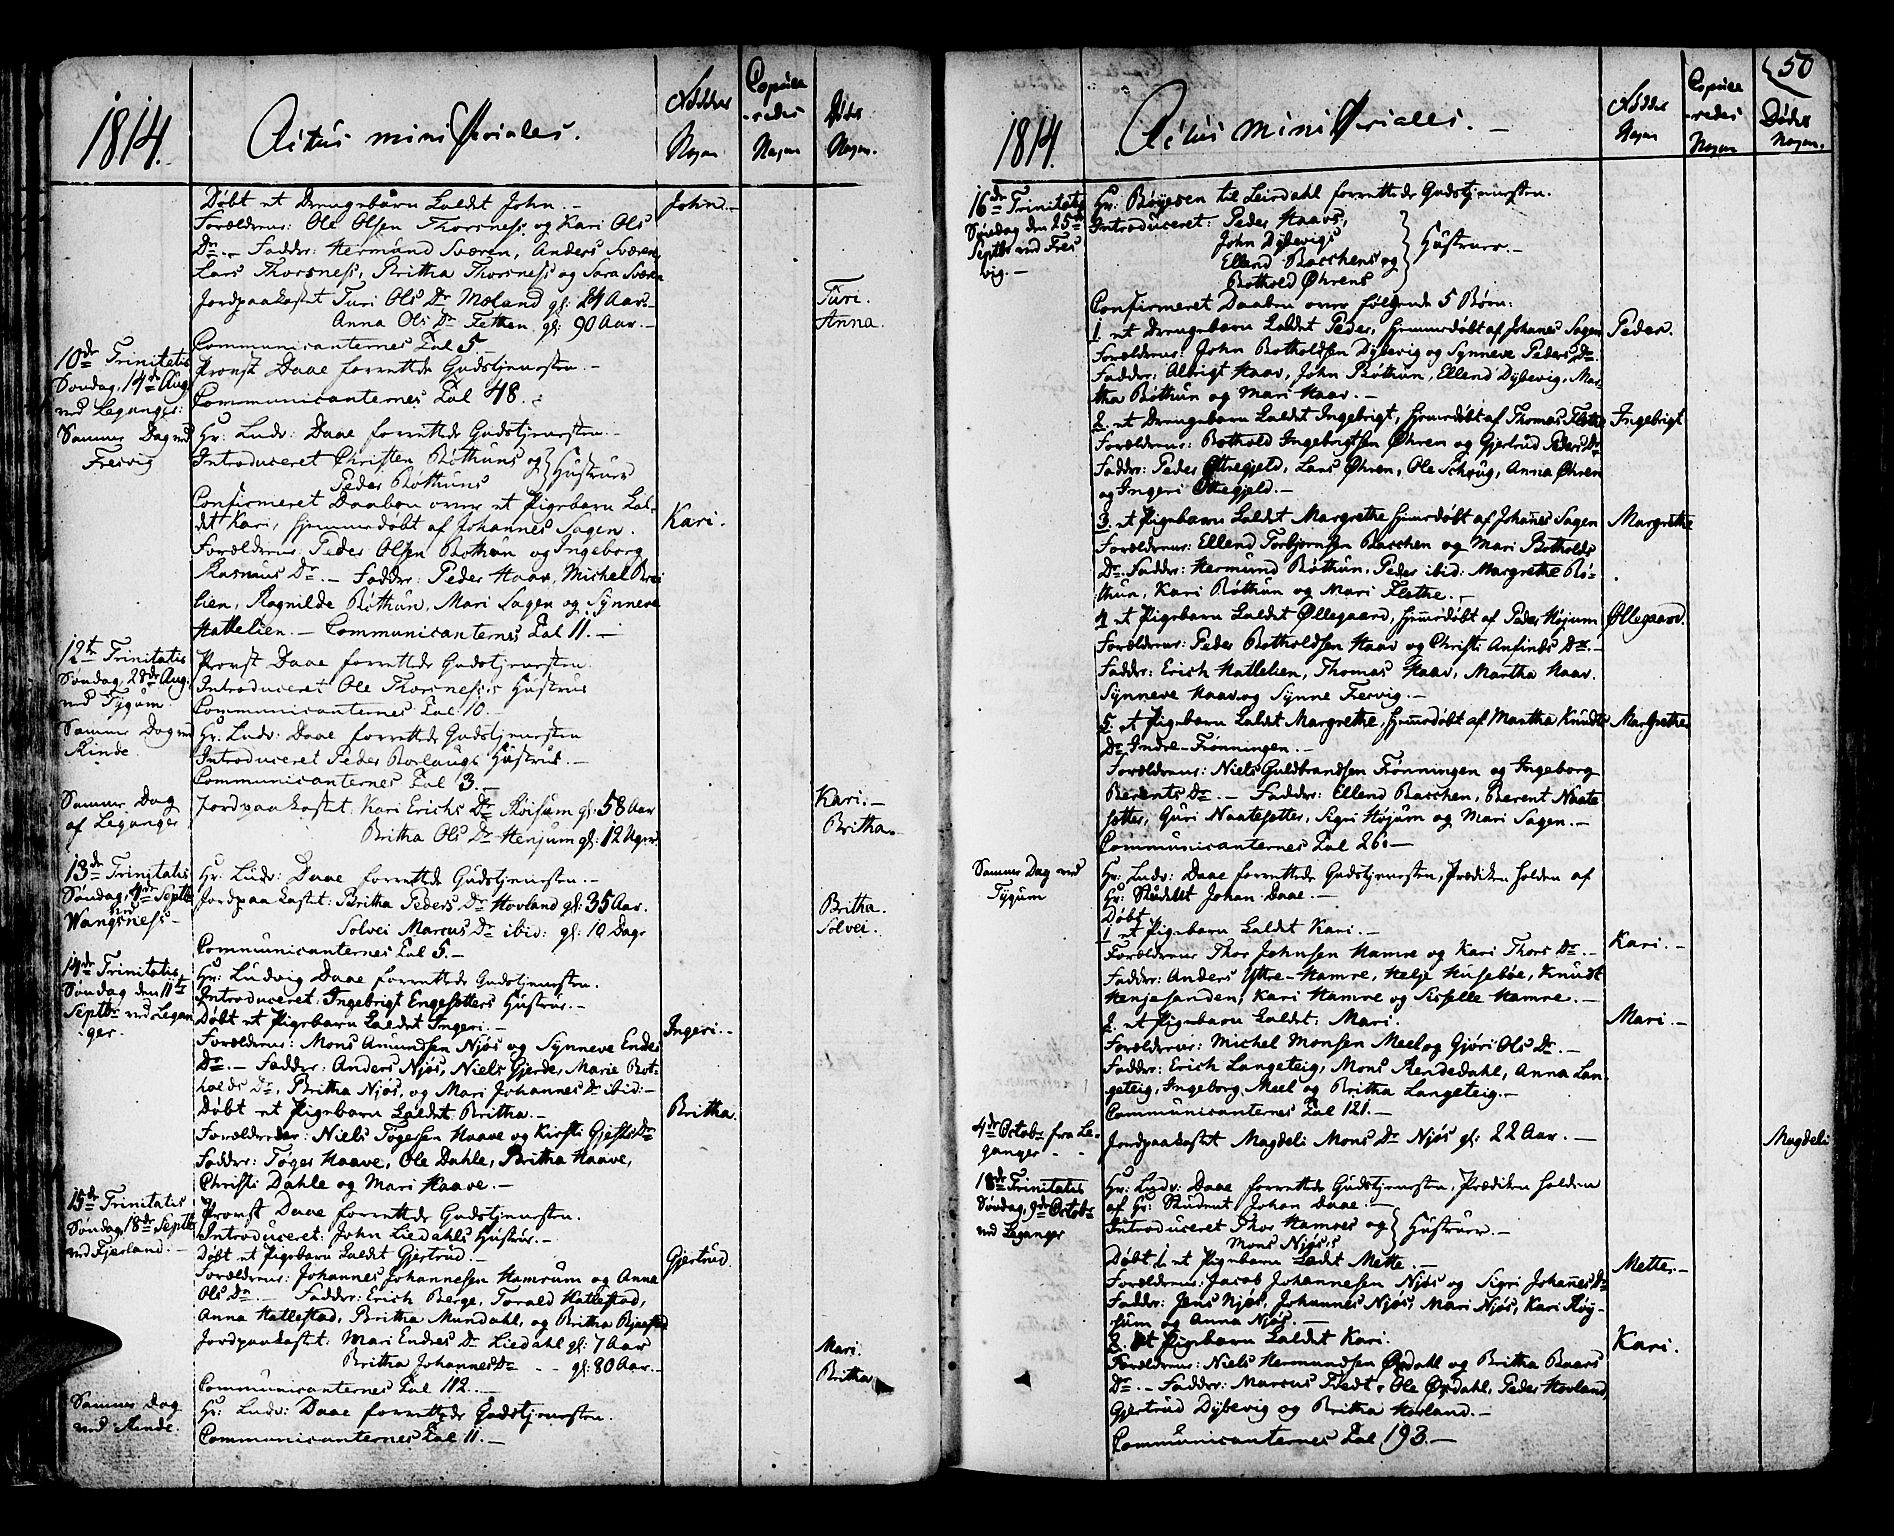 1814.
Actus ministeriales.
Fødde Nogen
Copule-redes Nogen
Døde Nogen.
Døbt et Drengebarn kaldet John. — John. —
Forældrene: Ole Olsen Thorsness og Kari Ols
Dr. — Faddr: Hermund Sværen, Anders Sværen,
Lars Thorsness, Britha Thorsness og Sara Sværen
Jordpaakastet Turi Ols Dr Moland gl: 24 Aar. Turi.
Anna Ols Dr Fetten gl: 90 Aar. — Anna.
Communicanternes Tal 5
10de Trinitatis
Søndag, 14de Aug
ved Leganger:
Provst Daae forrettede Gudstjenesten. —
Communicanternes Tal 48.
Samme Dag ved
Fresvig
Hr: Ludv: Daae forrettede Gudstjenesten. —
Introduceret Christen Bøthuns og
Peder Bothuns } Hustruer
Confirmeret Daaben over et Pigebarn kal-
det Kari, hjemmedøbt af Johannes Sagen. Kari.
Forældrene: Peder Olsen Bøthun og Ingeborg
Rasmus Dr. — Faddr: Peder Haav, Michel Brei
lien, Ragnilde Bøthun, Mari Sagen og Synneve
Hattelien. — Communicanternes Tal 11. —
12te Trinitatis
Søndag, 28de Aug.
ved Tygum
Provst Daae forrettede Gudstjenesten.
Introduceret Ole Thorsness's Hustrue
Communicanternes Tal 10. —
Samme Dag ved
Rinde.
Hr: Ludv: Daae forrettede Gudstjenesten
Introduceret Peder Borlaugs Hustrue. —
Communicanternes Tal 3. —
Samme Dag
af Leganger
Jordpaakastet: Kari Erichs Dr Røisum gl: 58 Aar Kari. —
Britha Ols Dr Henjum gl: 12 Uger Britha.
13de Trinitatis
Søndag, 4de Septbr
ved
Wangsness.
Hr: Ludv: Daae forrettede Gudstjenesten. —
Jordpaakastet: Britha Peders Dr Hovland gl: 35 Aar. Britha.
Solvei Marcus Dr ibid: gl: 10 Dage Solvei.
Communicanternes Tal 5. —
14de Trinitatis
Søndag den 11te
Septbr ved Legan
ger.
Hr: Ludvig Daae forrettede Gudstjenesten.
Introduceret: Ingebrigt Engesætters Hustrue. —
Døbt et Pigebarn kaldet Ingeri. — Ingeri. —
Forældrene: Mons Amundsen Njøs og Synneve Endes
Dr. — Faddr: Anders Njøs, Niels Gjerde, Marie Bot-
holds Dr, Britha Njøs, og Mari Johannes Dr ibid. —
Døbt et Pigebarn kaldet Britha. — Britha.
Forældrene: Niels Tøgersen Haave og Kirsti Gjests Dr
Faddr: Tøger Haave, Ole Dahle, Britha Haave,
Christi Dahle og Mari Haave. —
15de Trinitatis
Søndag, 18de Septbr
ved Fjerland. —
Provst Daae forrettede Gudstjenesten.
Introduceret: John Liedahls Hustrue. —
Døbt et Pigebarn kaldet Gjertrud. — Gjertrud.
Forældrene: Johannes Johannesen Hamrum og Anna
Ols Dr. — Faddr: Erich Berge, Torald Hatlestad,
Anna Hatlestad, Britha Mundahl, og Britha Bjaastad
Jordpaakastet: Mari Endres Dr Liedahl gl: 7 Aar Mari.
Britha Johannes Dr — gl: 80 Aar. — Britha
Communicanternes Tal 112. —
Samme Dag
ved Rinde.
Hr: Ludv: Daae forrettede Gudstjenesten.
Communicanternes Tal 11. —
50
1814.
Actus ministeriales. —
Fødde Nogen
Copule-redes Nogen
Døde Nogen.
16de Trinitatis
Søndag den 25de
Septbr ved Fres
vig. —
Hr: Bøyesen til Leirdahl forrettede Gudstjenesten.
Introduceret: Peder Haavs,
John Dybevigs
Ellend Bacchens og
Bothold Øhrens } Hustruer. —
Confirmeret Daaben over følgende 5 Børn:
1 et Drengebarn kaldet Peder, hjemmedøbt af Johanes Sagen Peder.
Forældrene: John Botholdsen Dybevig og Synneve Peders Dr.
Faddr: Albrigt Haav, John Bøthun, Ellend Dybevig, Mar
tha Bøthun og Mari Haav. —
2. et Drengebarn kaldet Ingebrigt, hjemmedøbt af Thomas Flethe Ingebrigt
Forældrene: Bothold Ingebrigtsen Øhren og Gjertrud Peders Dr
Faddr: Peder Ottregjeld, Lars Øhren, Ole Schoug, Anna Øhren
og Ingeri Ottregjeld. —
3. et Pigebarn kaldet Margrethe hjemmedøbt af Johañes Sagen Margrethe
Forældrene: Ellend Torbjørnsen Bacchen og Mari Botholds
Dr. Faddr: Hermund Bøthun, Peder ibid: Margrethe Bø-
thun, Kari Bøthun og Mari Flethe. —
4 et Pigebarn kaldet Øllegaard, hjemmedøbt af Peder Højum Øllegaard.
Forældrene: Peder Botholdsen Haav og Christi Anfinds Dr. —
Faddr: Erich Hattelien, Thomas Haav, Martha Haav.
Synneve Haav og Synne Fresvig. —
5. et Pigebarn kaldet Margrethe, hjemmedøbt af Martha Knudts Margrethe
Dr Indre-Frønningen. —
Forældrene: Niels Guldbrandsen Frønningen og Ingeborg
Berents Dr. — Faddr: Ellend Bacchen, Berent Naate
sætter, Guri Naatesætter, Sigri Højum og Mari Sagen. —
Communicanternes Tal 26. —
Samme Dag ved
Tygum
Hr: Ludv: Daae forrettede Gudstjenesten, Prædiken holden af
Hr: Studdt Johan Daae. —
Døbt
1 et Pigebarn kaldet Kari. — Kari. —
Forældrene Thor Johnsen Hamre og Kari Thors Dr. —
Faddr: Anders Yttre-Hamre, Helje Husebøe, Knudt
Henjesanden, Kari Hamre og Sisselle Hamre. —
2. et Pigebarn kaldet: Mari. Mari. —
Forældrene: Michel Monsen Meel og Gjøri Ols Dr. —
Faddr: Erich Langeteig, Mons Rendedahl, Anna Lan-
geteig, Ingeborg Meel og Britha Langeteig. —
Communicanternes Tal 121. —
4de Octobr fra Le-
ganger
Jordpaakastet Magdeli Mons Dr Njøs gl: 22 Aar. — Magdeli
18de Trinitatis
Søndag, 9de Octobr
ved Leganger
Hr: Ludv: Daae forrettede Gudstjenesten, Prædiken holden
af Hr: Student Johan Daae. —
Introduceret Thor Hamres og
Mons Njøs's } Hustruer. —
Døbt 1. et Pigebarn kaldet Mette. — Mette. —
Forældrene: Jacob Johannesen Njøs og Sigri Johañes Dr
Faddr: Jens Njøs, Johannes Njøs, Mari Njøs, Kari Røy-
sum og Anna Njøs. —
2. et Pigebarn kaldet Kari. Kari.
Forældrene: Niels Hermundsen Opdahl og Britha Baars
Dr. — Faddr: Marcus Fledt, Ole Opdahl, Peder Hovland,
Gjertrud Dybevig og Britha Hovland. —
Communicanternes Tal 193. —